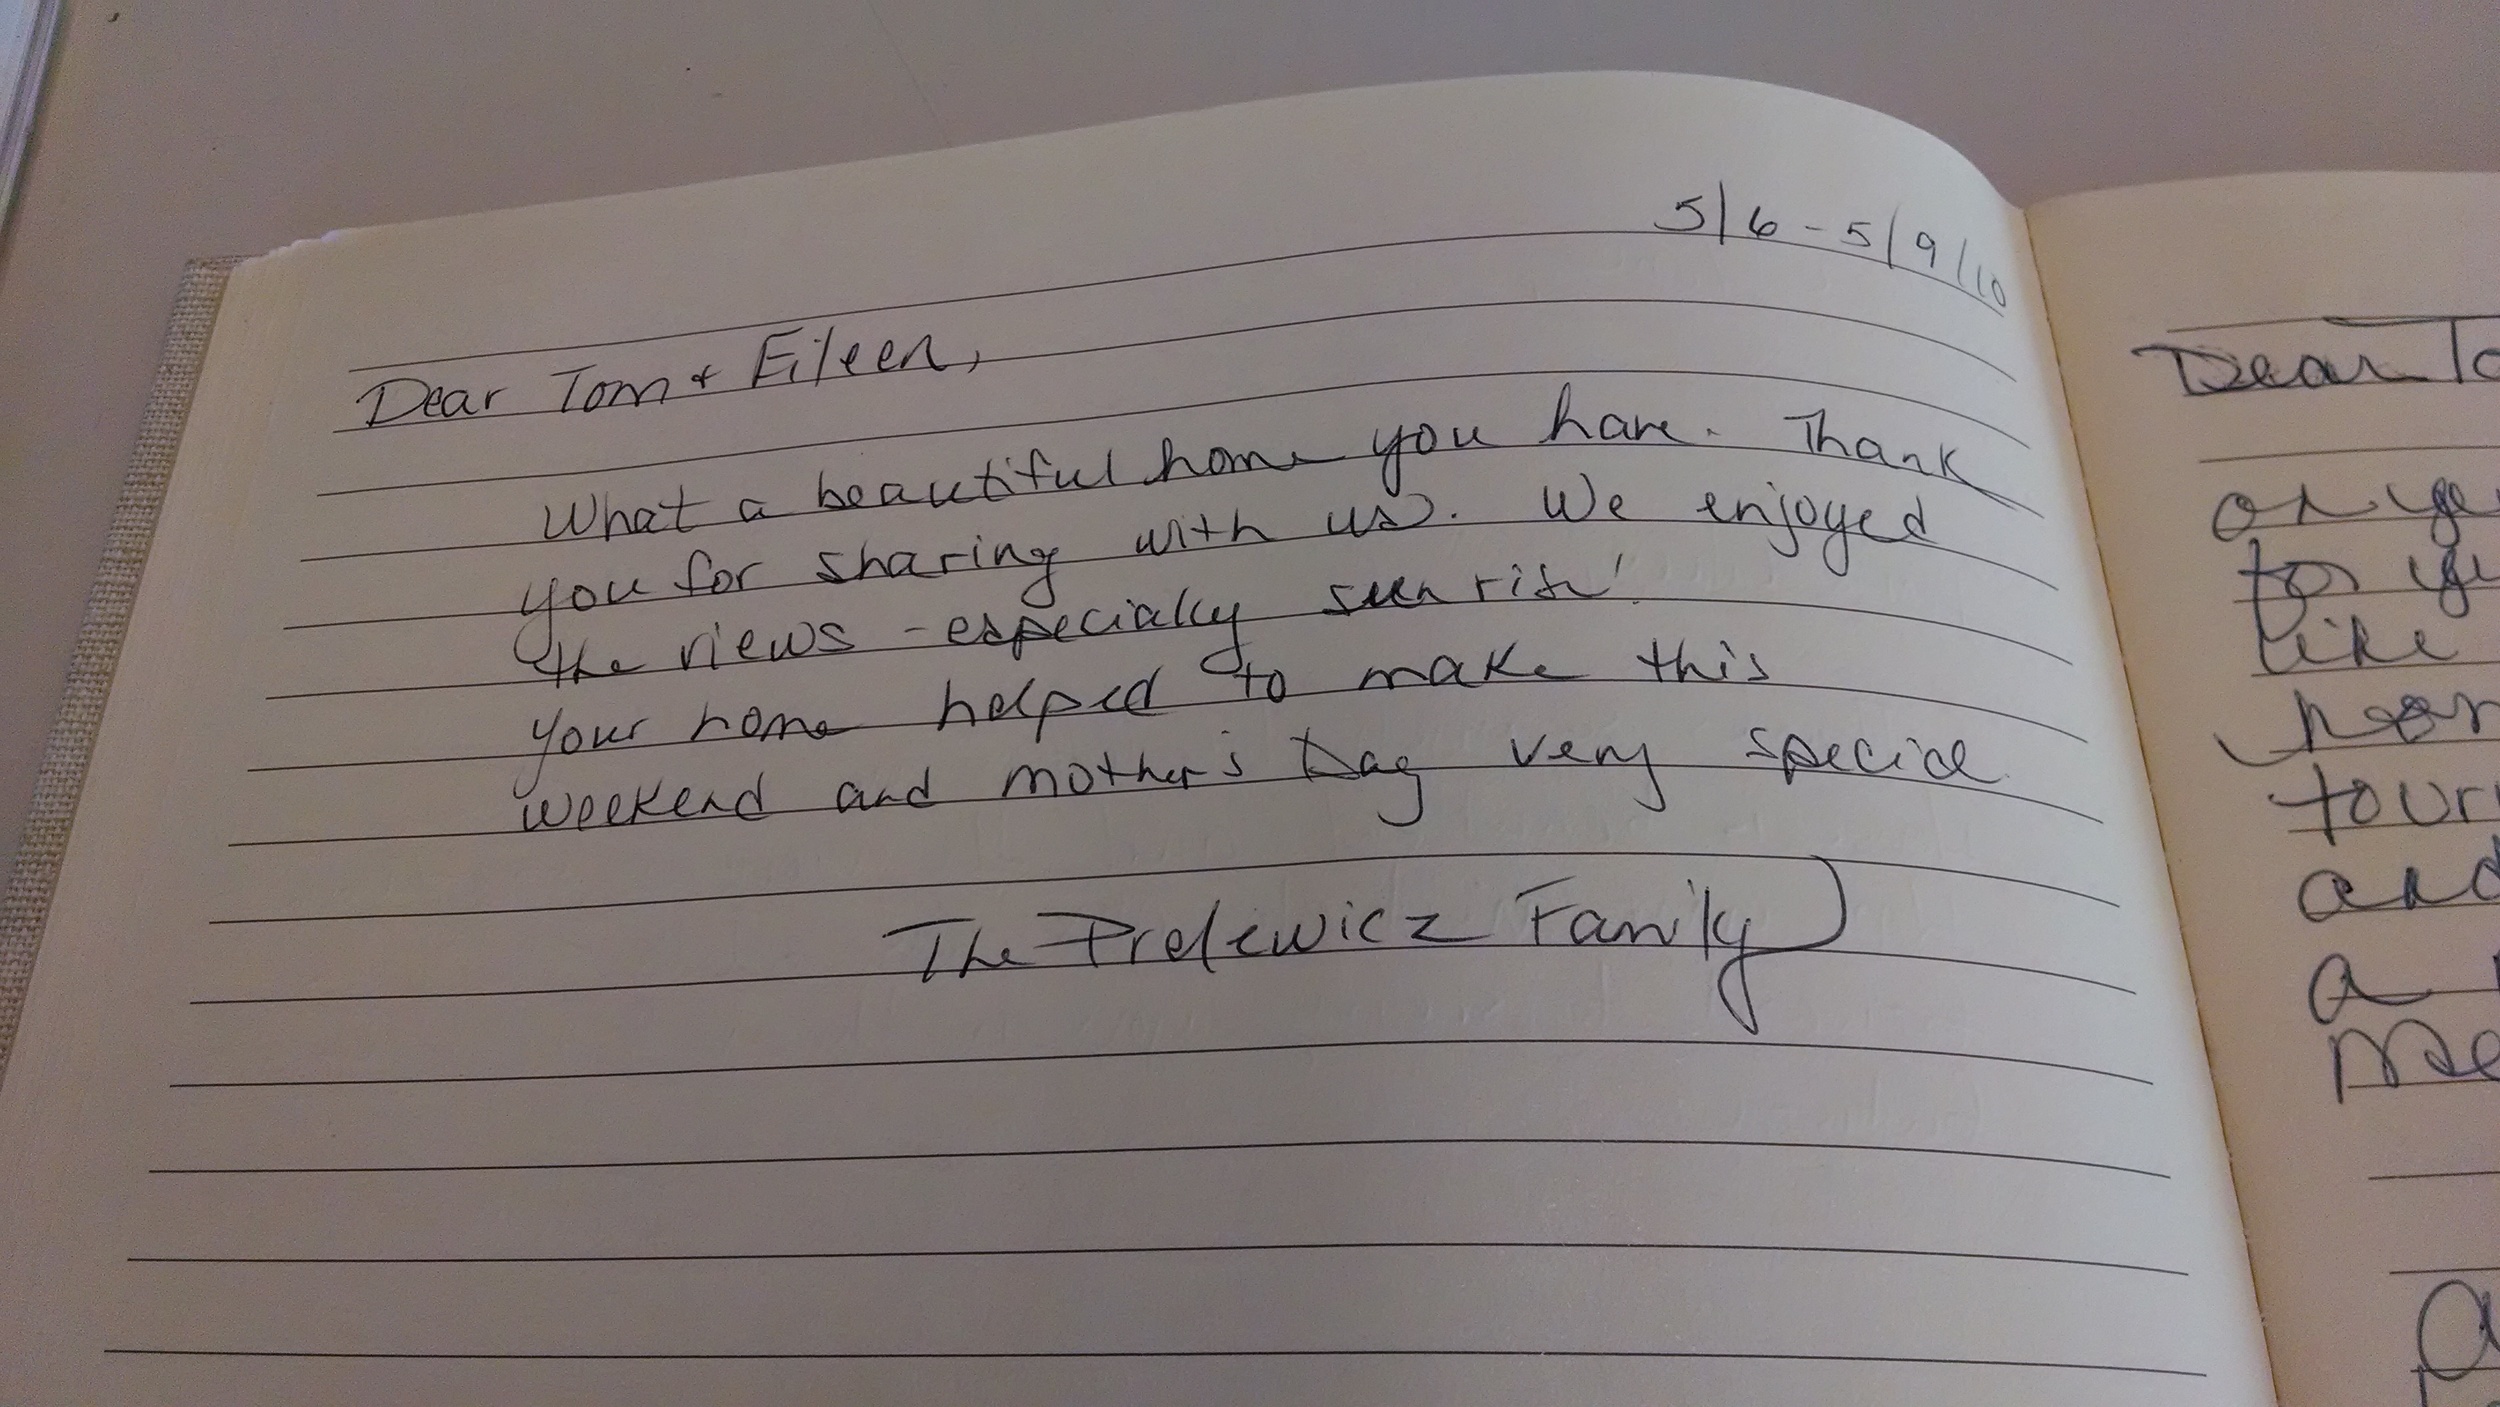 5/6 - 5/9/10
Dear Tom + Eileen,
What a beautiful home you have. Thank
you for sharing with us. We enjoyed
the views - especially sunrise!
Your home helped to make this
weekend and mother's Day very special
The Prelewicz Family
Dear To
or ye
to yo
like
hom
tour
and
a
Me